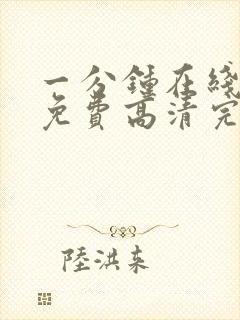 一分鍾在綫
免費高清完
陸洪来